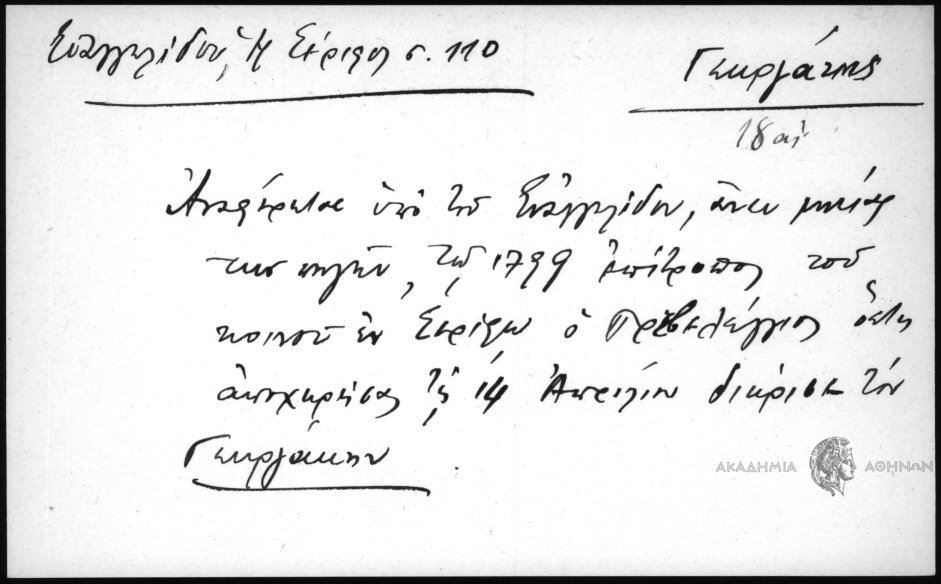 Εὐαγγελίδου, Ἡ Σέριφος σ. 110
Γεωργάκης
18 αἰ.
Ἀναφέρεται ὑπὸ τοῦ Εὐαγγελίδου, ἄνευ μνείας
της πηγῆς, τῷ 1799 ἐπίτροπος τοῦ
κοινοῦ ἐν Σερίφῳ ὁ Πρεβελέγγιος ὅστις
ἀποχωρήσας τῇ 14 Ἀπριλίου διώρισε τὸν
Γεωργάκην.
ΑΚΑΔΗΜΙΑ ΑΘΗΝΩΝ